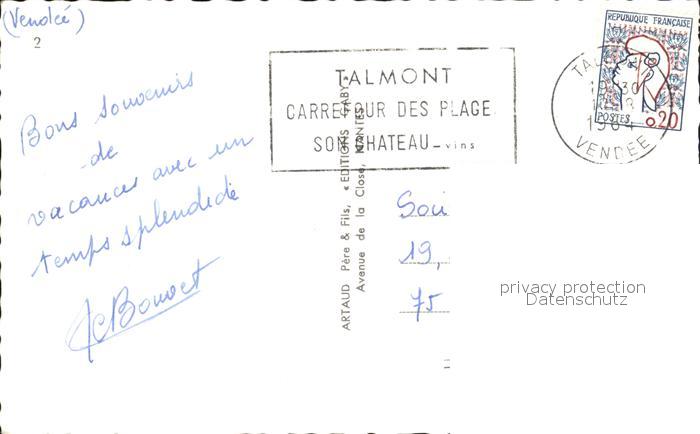 (Vendée)
2
Bons souvenirs
de
vacances avec un
temps splendide
JCBouvet
TALMONT
CARREFOUR DES PLAGE
SON CHATEAU - vins
ARTAUD Père & Fils, « EDITIONS GABY»
Avenue de la Close, NANTES
REPUBLIQUE FRANÇAISE
POSTES 0,20
30
VENDÉE
Soci
19,
75
privacy protection
Datenschutz